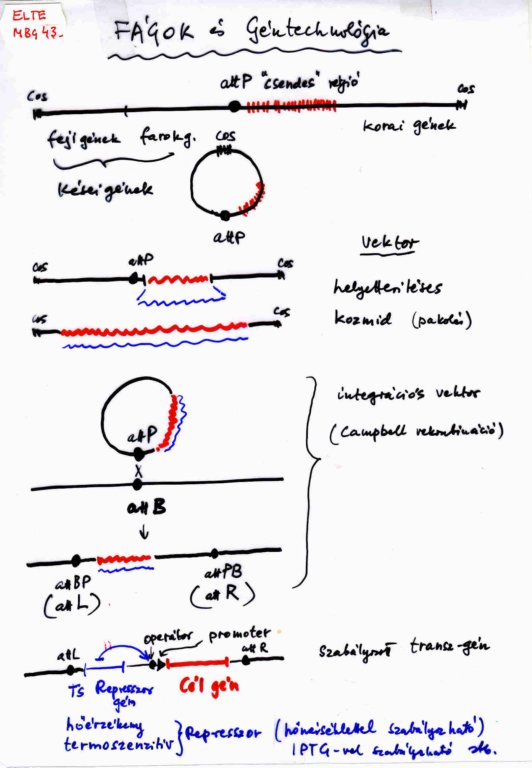 ELTE
MBG 43.
FÁGOK és Géntechnológia
attP "csendes" régió
cos
cos
korai gének
feji gének farokg.
cos
Késői gének
attP
Vektor
cos attP cos
helyettesítéses
cos cos
kozmid (pakolás)
attP
integrációs vektor
(Campbell rekombináció)
X
attB
attBP
(attL)
attPB
(attR)
operátor promoter
attL attR
szabályozott transz-gén
Ts Represszor Cél gén
gén
hőérzékeny
termoszenzitív } Represszor (hőmérséklettel szabályozható)
IPTG-vel szabályozható stb.